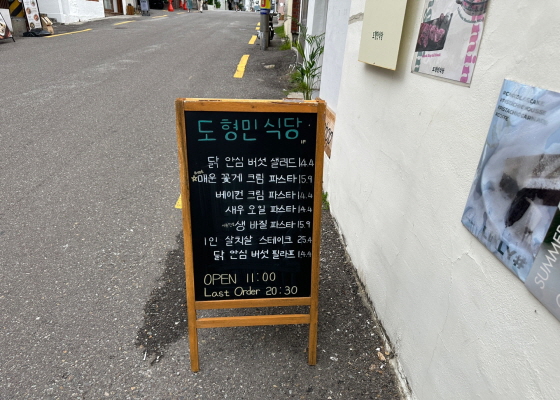 도형민 식당
닭 안심 버섯 샐러드 14.4
매운 꽃게 크림 파스타 15.9
베이컨 크림 파스타 14.4
새우 오일 파스타 14.4
생 바질 파스타 15.9
1인 살치살 스테이크 25.4
닭 안심 버섯 필라프 14.4
OPEN 11:00
Last Order 20:30
SUMMER